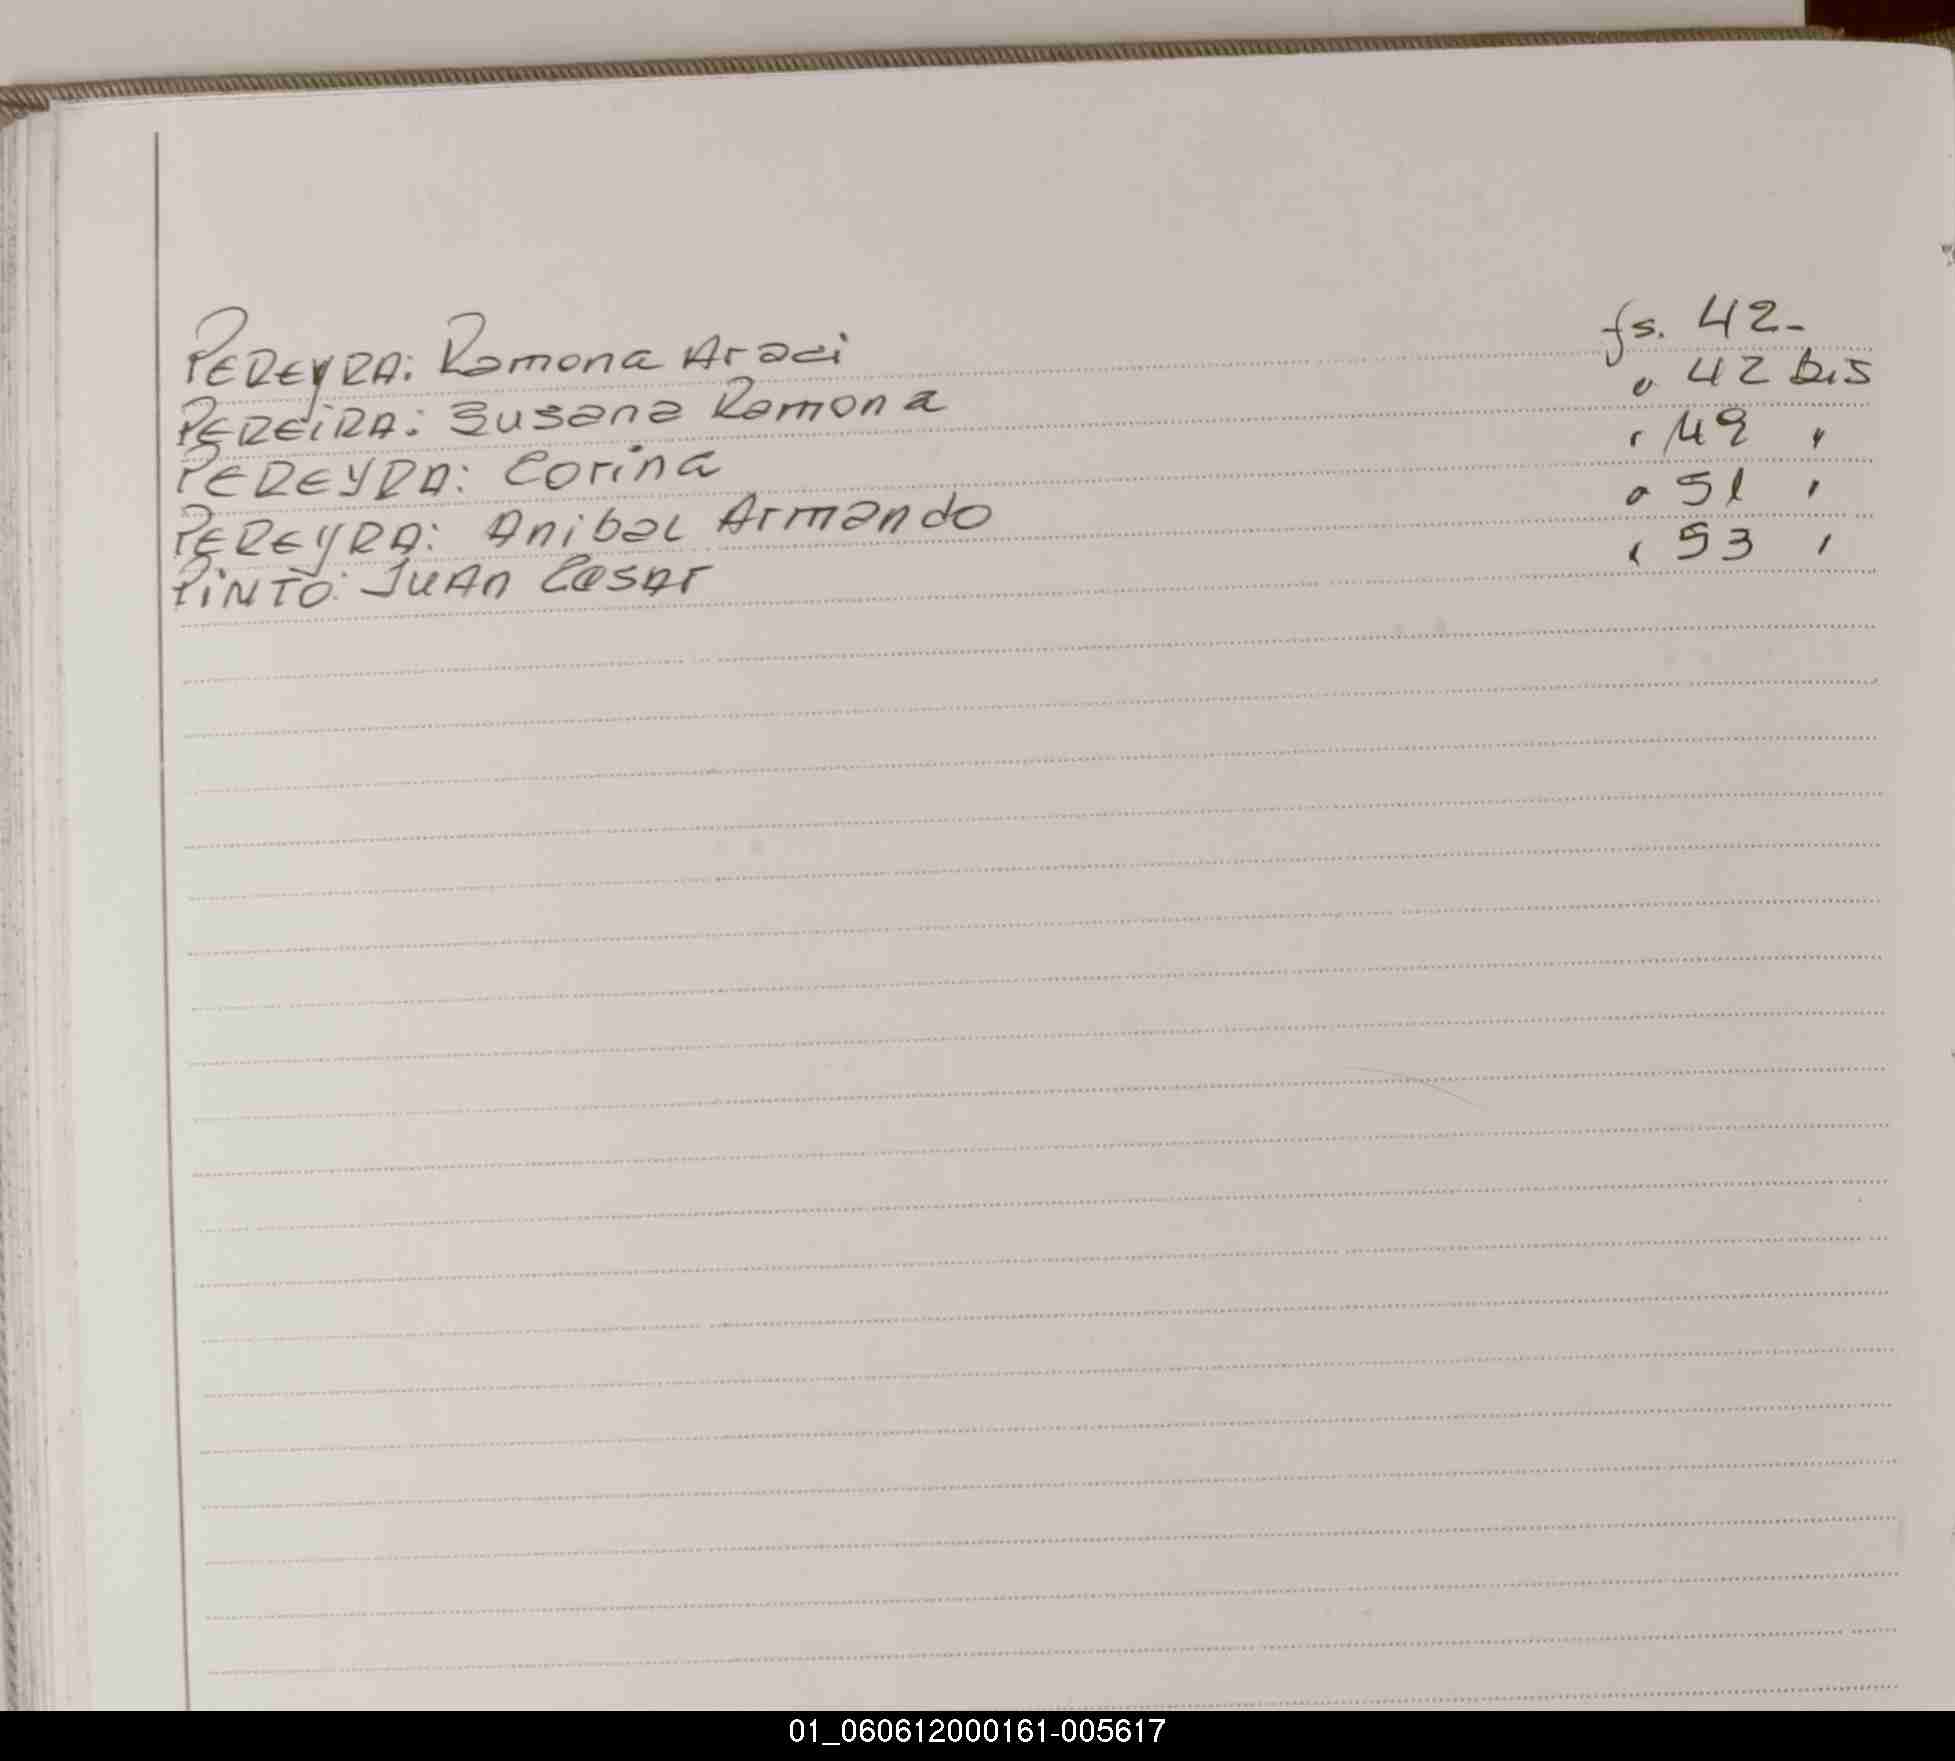 PEREYRA: Ramona Araci fs. 42-
PEREIRA: Susana Ramona " 42 bis
PEREYRA: Corina " 49 "
PEREYRA: Anibal Armando " 51 "
PINTO: Juan Cesar " 53 "
01_060612000161-005617